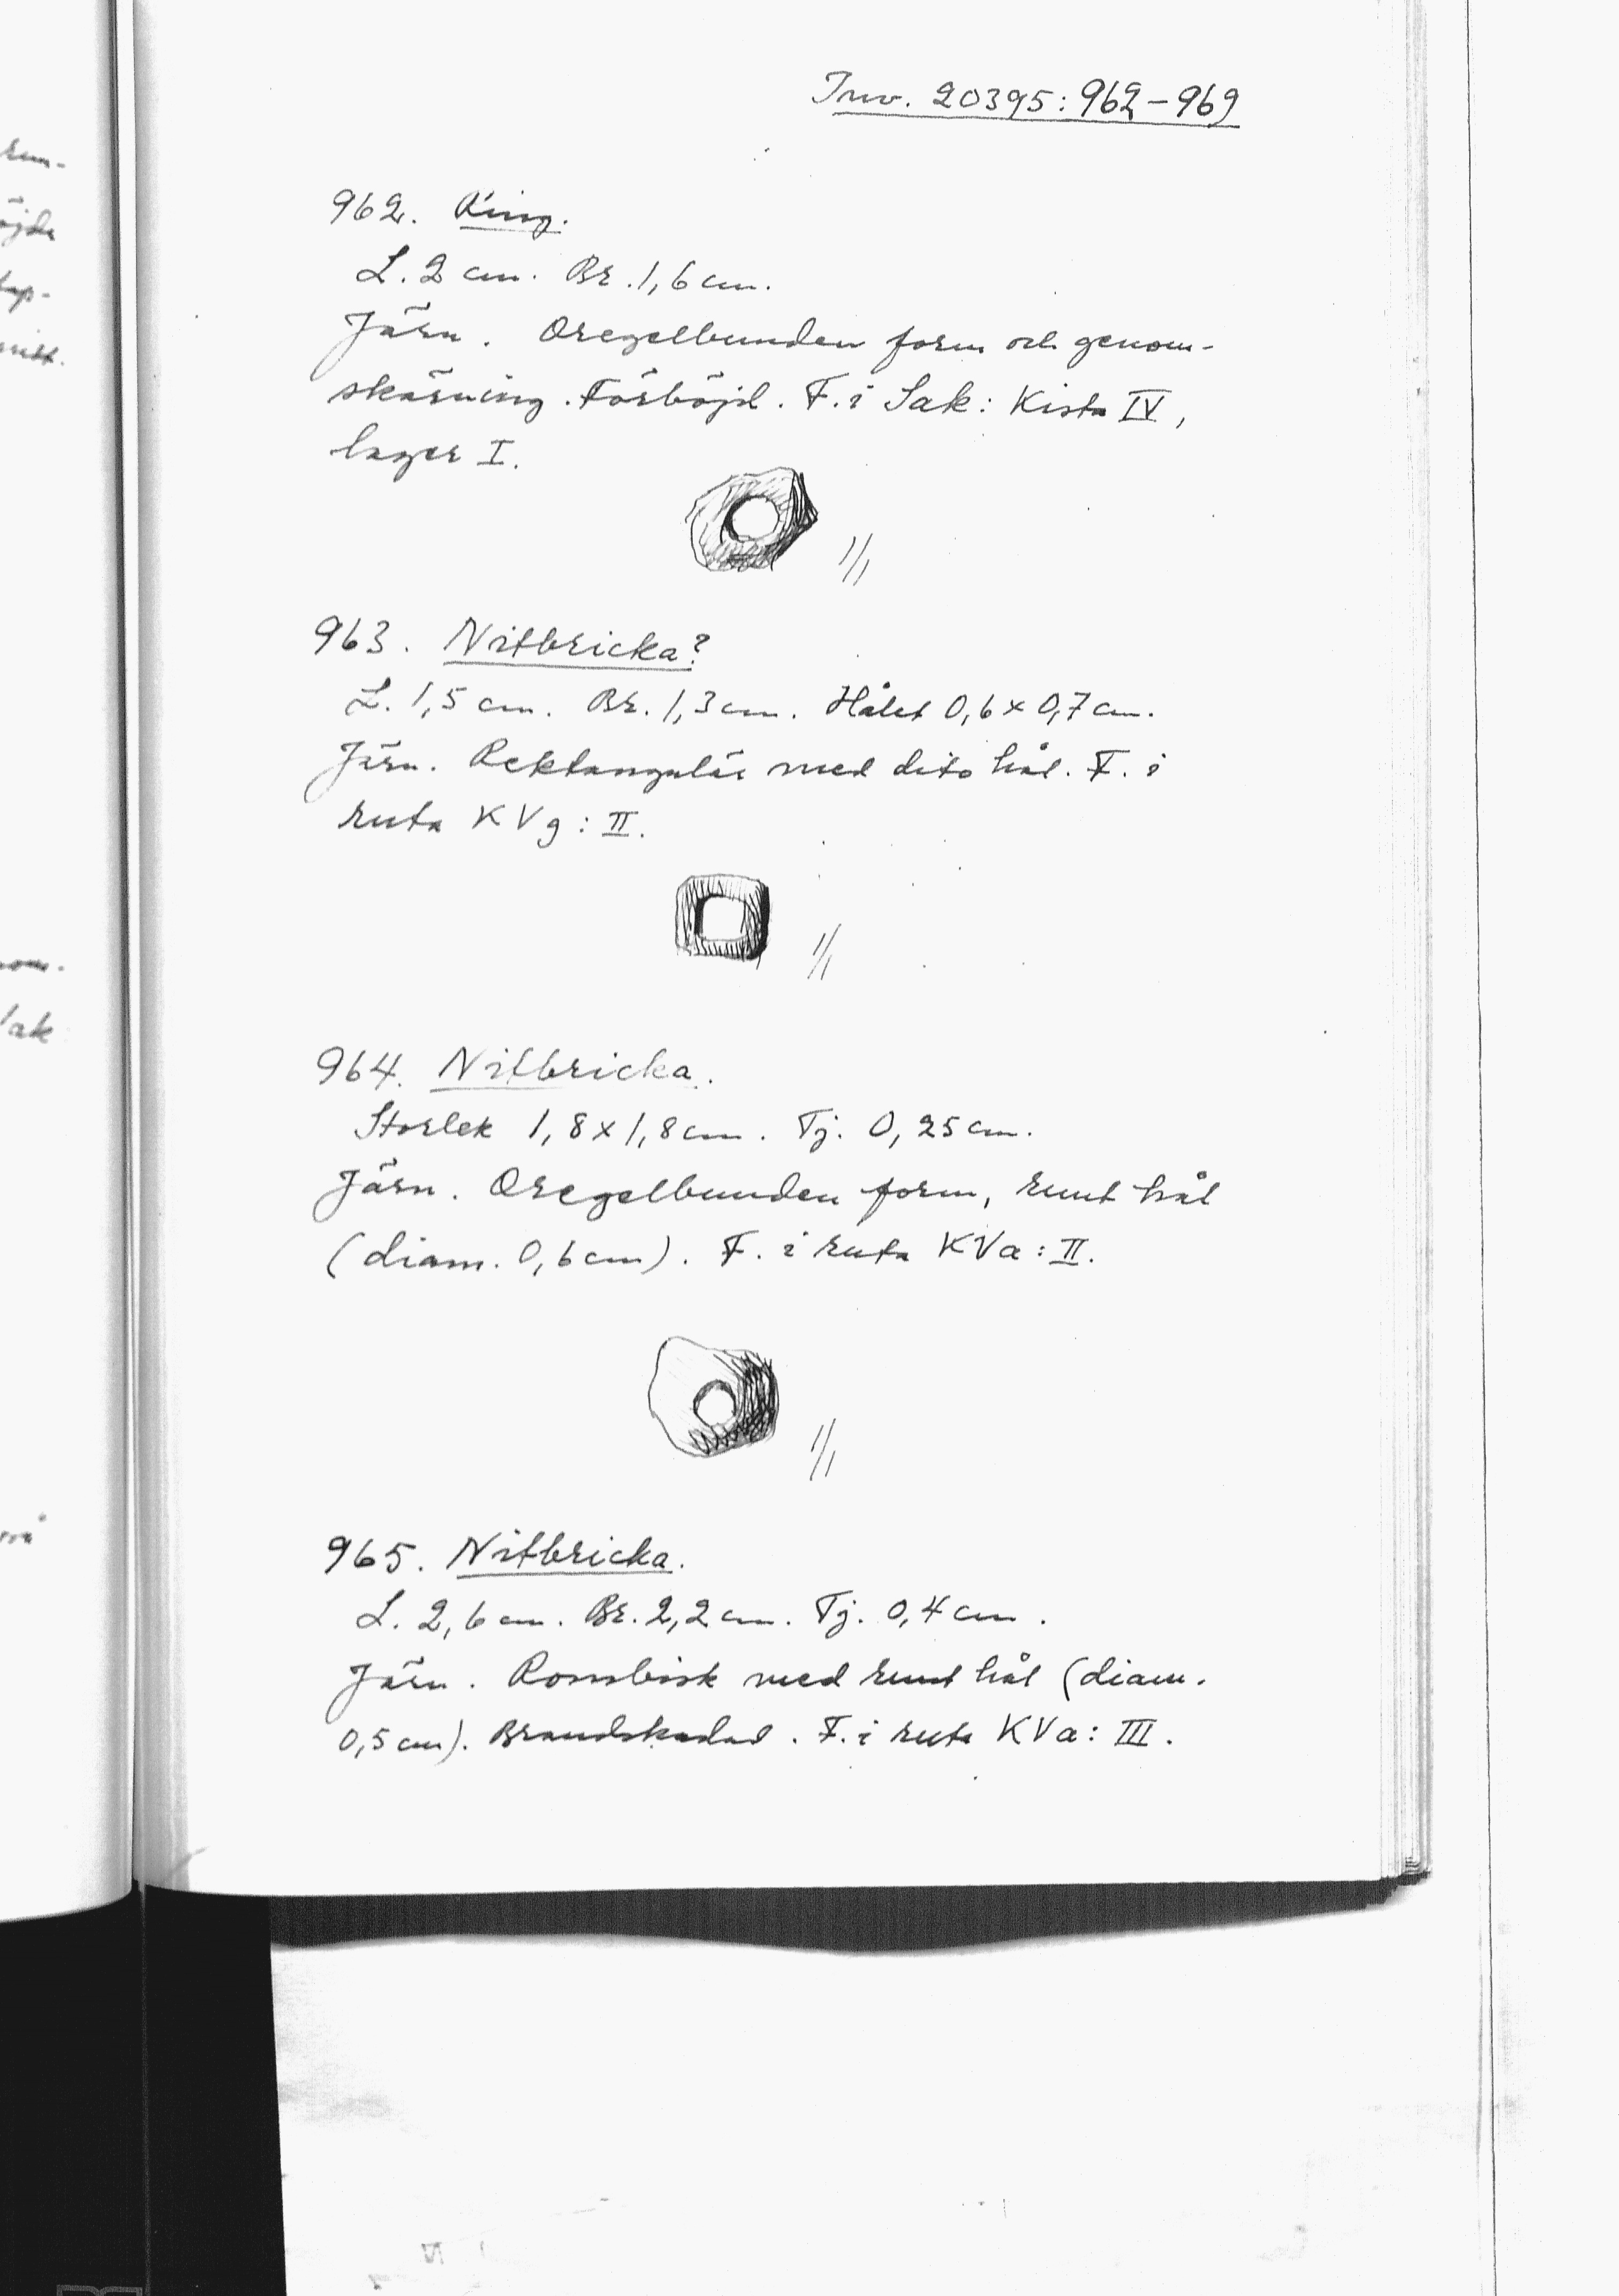 Inv. 20395:962-969
962. Ring.
L. 2 cm. Br. 1,6 cm.
Järn. Oregelbunden form och genom-
skärning. Förböjd. F. i Sak: Kista IV,
lager I.
1/1
963. Nitbricka?
L. 1,5 cm. Br. 1,3 cm. Hålet 0,6 x 0,7 cm.
Järn. Rektangulär med dito hål. F. i
ruta KVg: II.
1/1
964. Nitbricka.
Storlek 1,8 x 1,8 cm. Tj. 0,25 cm.
Järn. Oregelbunden form, runt hål
(diam. 0,6 cm). F. i ruta KVa: II.
1/1
965. Nitbricka.
L. 2,6 cm. Br. 2,2 cm. Tj. 0,4 cm.
Järn. Rombisk med runt hål (diam.
0,5 cm). Brandskadad. F. i ruta KVa: III.